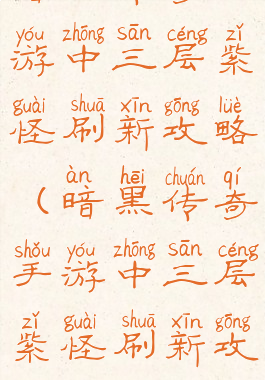 yóu zhōng sān céng zǐ
游中三层紫
guài shuā xīn gōng lüè
怪刷新攻略
àn hēi chuán qí
（暗黑传奇
shǒu yóu zhōng sān céng
手游中三层
zǐ guài shuā xīn gōng
紫怪刷新攻